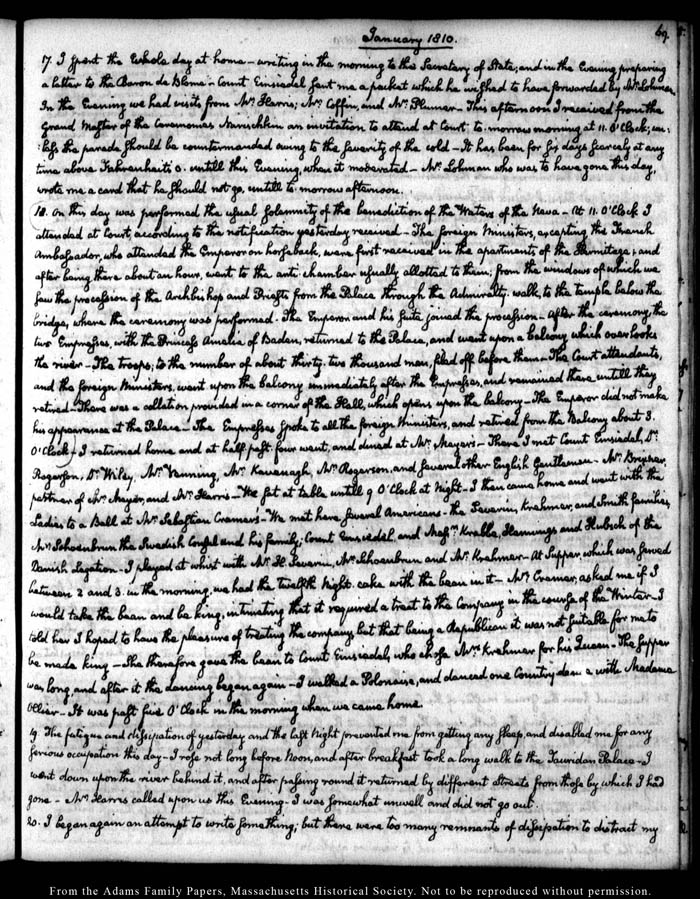 69.
January 1810.
17. I spent the whole day at home – writing in the morning to the Secretary of State; and in the Evening preparing
a letter to the Baron de Blome – Count Einsiedel sent me a packet which he wished to have forwarded by Mr. Lohman.
In the Evening we had visits from Mr. Harris, Mr. Coffin, and Mr. Plumer – This afternoon I received from the
Grand Master of the Ceremonies Narischkin an invitation to attend at Court to-morrow morning at 11. O'Clock; un-
:less the parade should be countermanded owing to the severity of the cold – It has been for six days scarcely at any
time above Fahrenheit's 0. untill this Evening, when it moderated – Mr. Lohman who was to have gone this day,
wrote me a card that he should not go, untill to-morrow afternoon.
18. On this day was performed the usual solemnity of the benediction of the Waters of the Neva – At 11. O'Clock I
attended at Court, according to the notification yesterday received – The foreign Ministers, excepting the French
Ambassador, who attended the Emperor on horseback, were first received in the apartments of the Hermitage; and
after being there about an hour, went to the anti-chamber usually allotted to them; from the windows of which we
saw the procession of the Archbishop and Priests from the Palace through the Admiralty-walk, to the temple below the
bridge, where the ceremony was performed – The Emperor and his suite joined the procession – After the ceremony, the
two Empresses, with the Princess Amelia of Baden, returned to the Palace, and went upon a balcony which overlooks
the river – The troops, to the number of about thirty-two thousand men, filed off before them – The Court attendants,
and the foreign Ministers, went upon the balcony immediately after the Empresses, and remained there untill they
retired – There was a collation provided in a corner of the Hall, which opens upon the balcony – The Emperor did not make
his appearance at the Palace – The Empresses spoke to all the foreign Ministers, and retired from the Balcony about 3.
O'Clock – I returned home and at half past four went, and dined at Mr. Meyer's – There I met Count Einsiedel, Dr.
Rogerson, Dr. Wiley, Mr. Venning, Mr. Kavanagh, Mr. Rogerson, and several other English Gentlemen – Mr. Brexner,
partner of Mr. Meyer, and Mr. Harris – We sat at table untill 9 O'Clock at Night – I then came home and went with the
Ladies to a Ball at Mr. Sebastian Cramer's – We met here several Americans – the Severin, Krehmer, and Smith families,
Mr. Schoenbrun the Swedish Consul and his family; Count Einsiedel, and Messrs. Krabbe, Hennings and of the
Danish Legation – I played at whist with Mr. St. Severin, Mr. Schoenbrun and Mr. Krehmer – At Supper which was served
between 2 and 3. in the morning, we had the twelfth Night-cake with the bean in it – Mrs. Cramer, asked me if I
would take the bean and be king; intimating that it required a treat to the Company in the course of the Winter – I
told her I hoped to have the pleasure of treating the company, but that being a Republican it was not suitable for me to
be made king – She therefore gave the bean to Count Einsiedel, who chose Mrs. Krehmer for his Queen – The supper
was long and after it the dancing began again – I walked a Polonaise, and danced one Country dance with Madame
– It was past five O'Clock in the morning when we came home.
19. The fatigue and dissipation of yesterday and the last Night prevented me from getting any sleep, and disabled me for any
serious occupation this day – I rose not long before Noon, and after breakfast took a long walk to the Tauridan Palace – I
went down upon the river behind it, and after passing round it returned by different streets from those by which I had
gone – Mr. Harris called upon us this Evening – I was somewhat unwell and did not go out.
20. I began again an attempt to write something; but there were too many remnants of dissipation to distract my
From the Adams Family Papers, Massachusetts Historical Society. Not to be reproduced without permission.